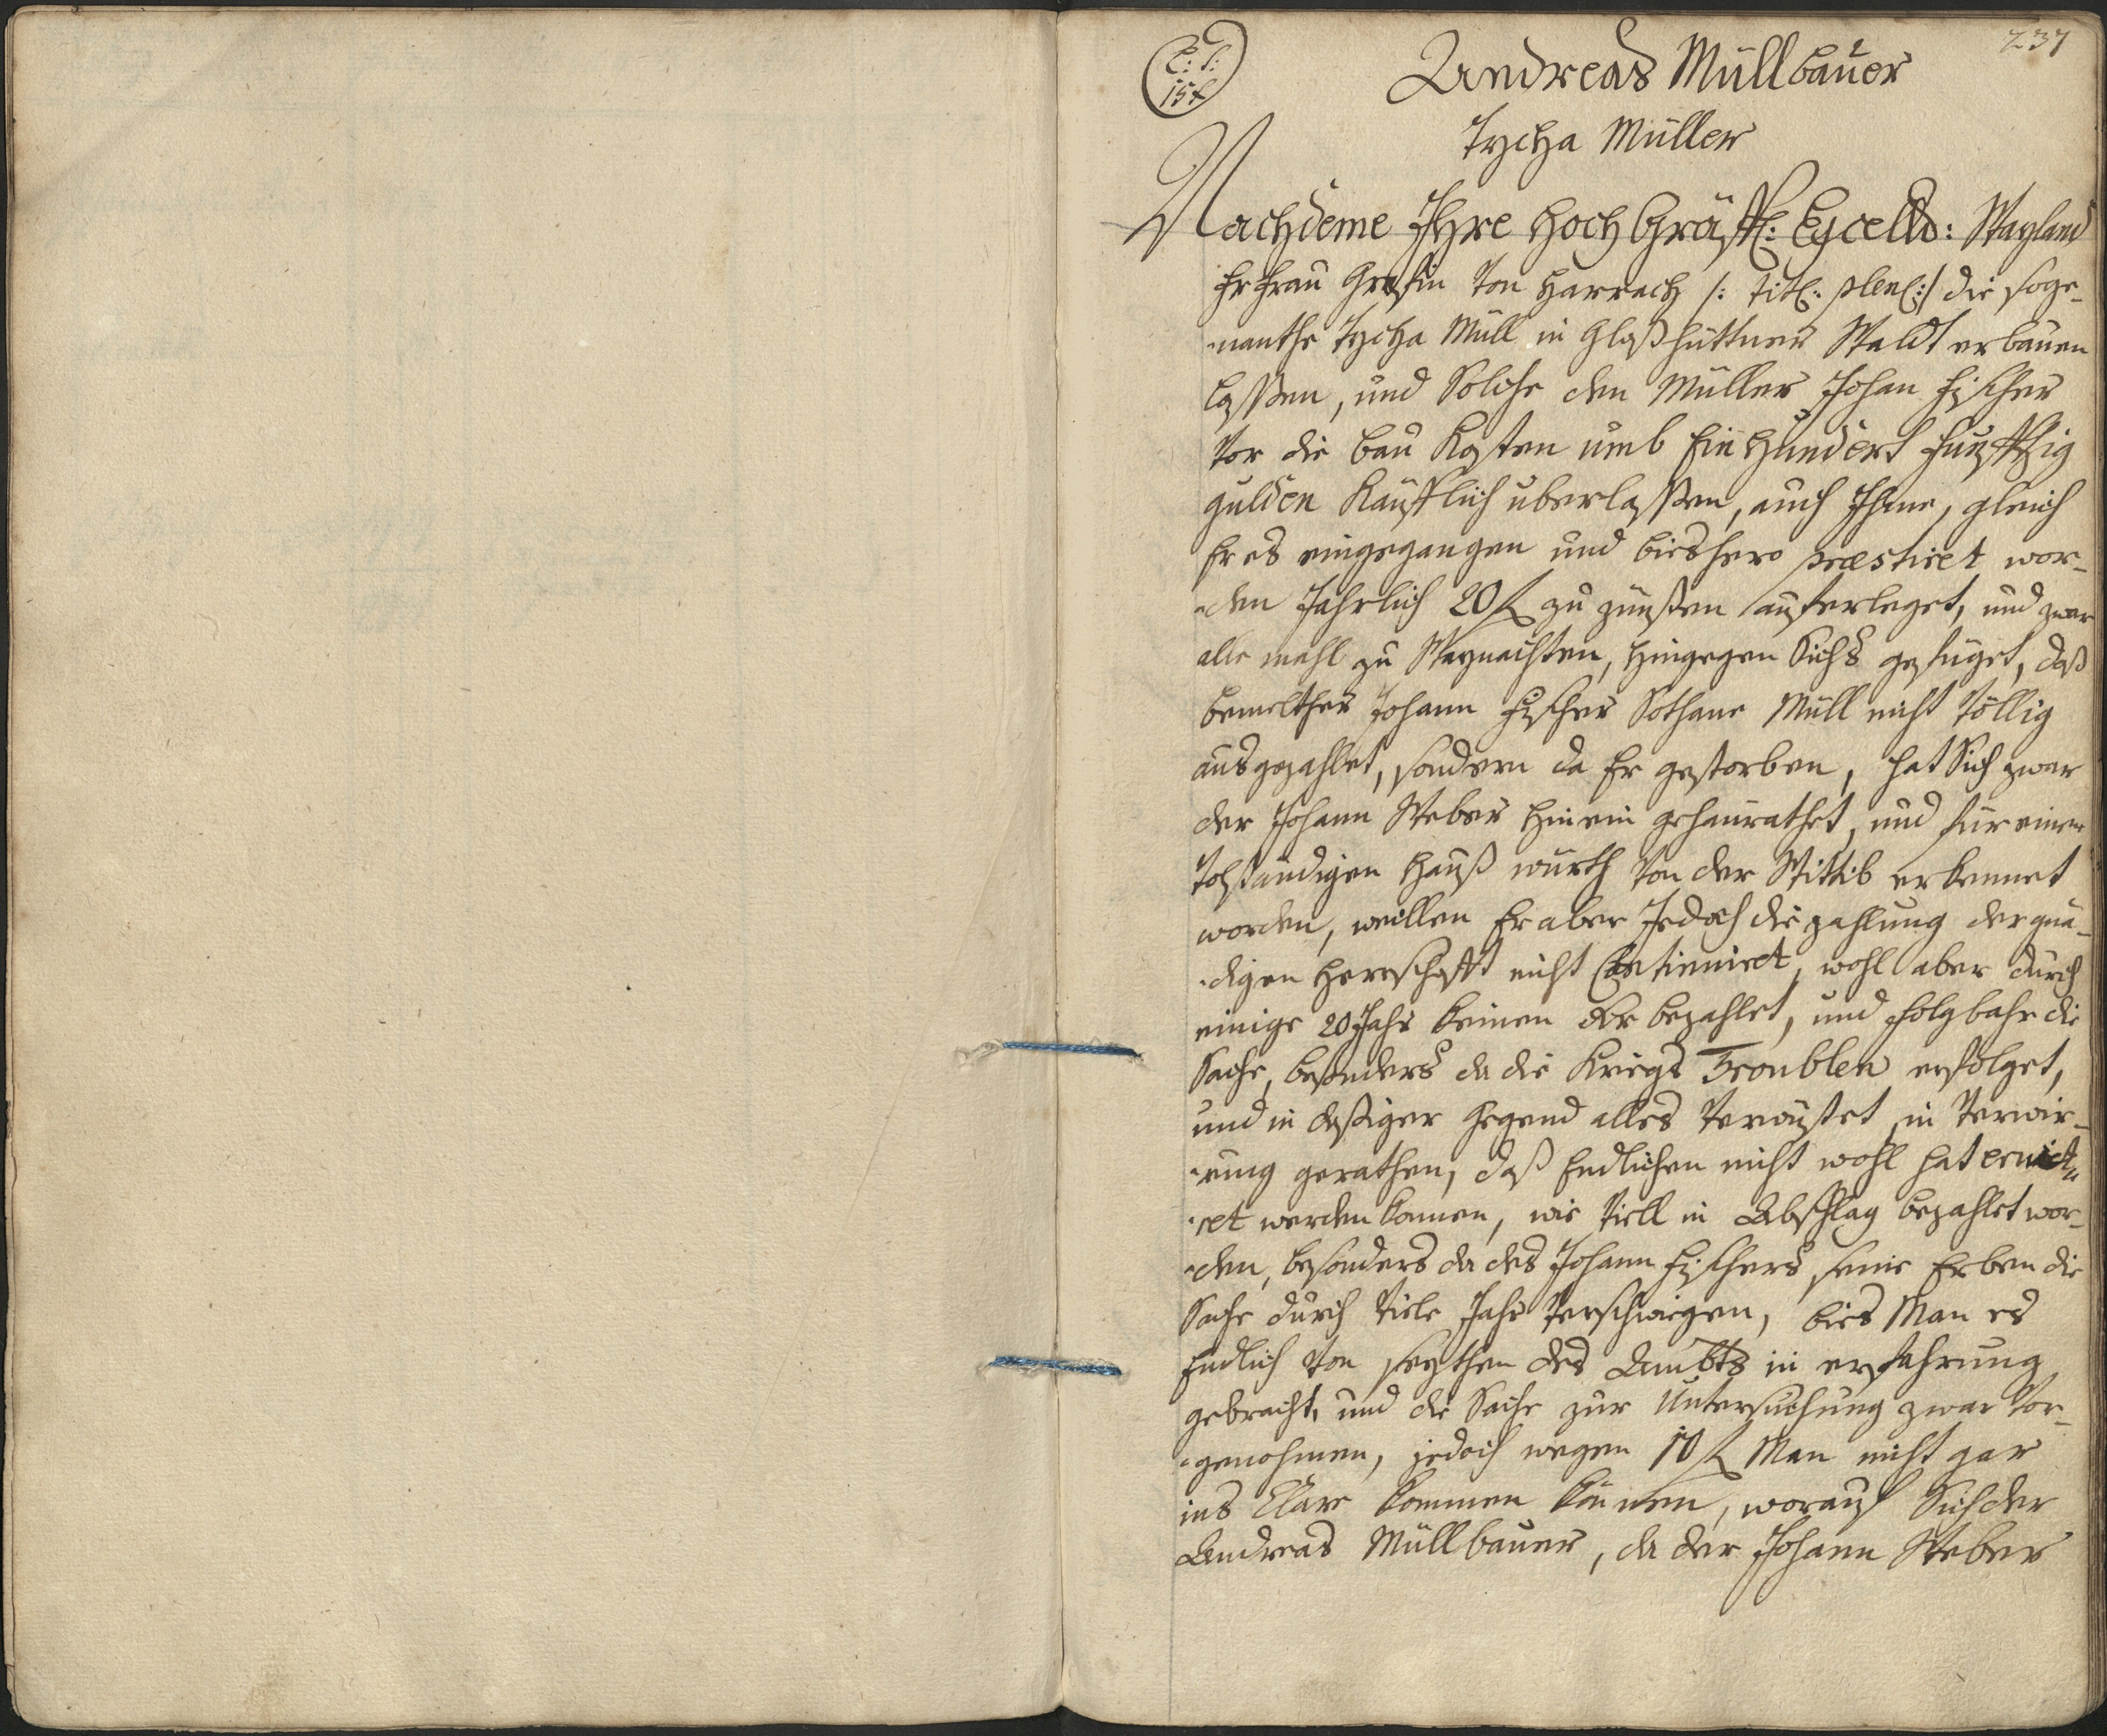 237
C: S:
154
Andreas Müllbauer
Tycha Müller
Nachdeme Ihre Hoch Gräffl: Excells: Wayland
Fr Frau Grafin von Harrach /: titl: plen:/ die soge-
-nanthe Tycha Müll in Glaßhüttner Waldt erbauen
lassen, und Solche dem Müller Johan Fischer
vor die Bau Kosten umb Ein Hundert Funffzig
gulden Kaufflich uberlassen, auch Ihme, gleich
Er es eingegangen und bieshero præstiret wor-
-den Jahrlich 20 f zu zünßen auferleget, und zwar
alle mahl zu Waynachten, hingegen Sichs gefüget, daß
bemelther Johann Fischer Sothane Müll nicht völlig
ausgezahlet, sondern da Er gestorben, hat Sich zwar
der Johann Weber hinein geheurathet, und für einen
vohständigen Hauß würth von der Wittib erkennet
worden, weillen Er aber Jedoch die zahlung der gnä-
-digen Herrschafft nicht Continuiret, wohl aber durch
einige 20 Jahr keinen xr bezahlet, und folgbahr die
Sache, besonders da die Kriegs Troublen erfolget,
und in dasiger Gegend alles verwüstet, in verwir-
-rung gerathen, daß Endlichen nicht wohl hat erui-
-ret werden können, wie viell in Abschlag bezahlet wor-
-den, besonders da des Johann Fischers seine Erben die
Sache durch viele Jahr verschwiegen, bies Man es
Endlich von seythen des Ambts in erfahrung
gebracht, und die Sache zur Untersuchung zwar vor-
-genohmen, jedoch wegen 10 f Man nicht gar
ins Clare kommen können, worauf Sich der
Andreas Müllbauer, da der Johann Weber